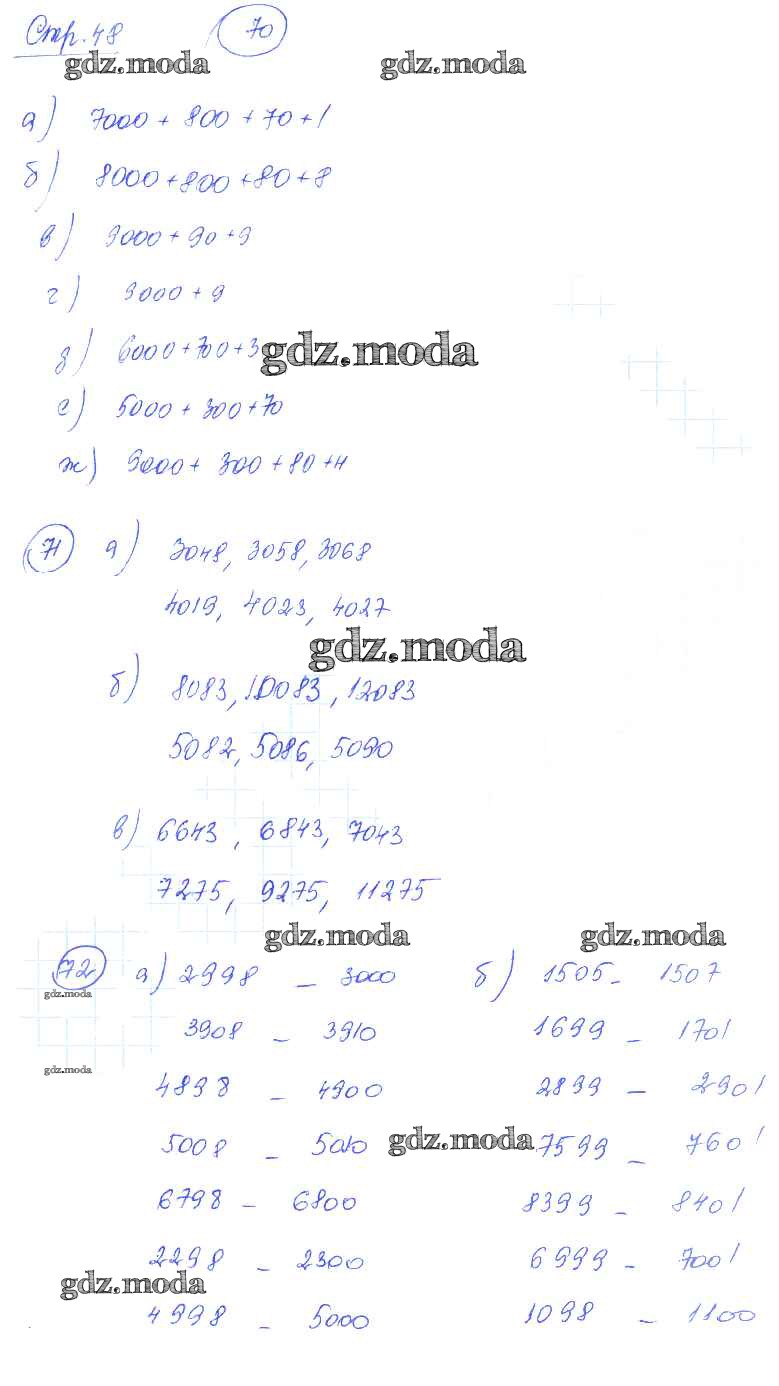 Стр. 48 70
gdz.moda gdz.moda
а) 7000 + 800 + 70 + 1
б) 8000 + 800 + 80 + 8
в) 9000 + 90 + 9
г) 9000 + 9
д) 6000 + 700 + 3 gdz.moda
е) 5000 + 300 + 70
ж) 9000 + 300 + 80 + 4
71 а) 3048, 3058, 3068
4019, 4023, 4027
gdz.moda
б) 8083, 10083, 12083
5082, 5086, 5090
в) 6643, 6843, 7043
7275, 9275, 11275
gdz.moda gdz.moda
72 а) 2998 – 3000 б) 1505 – 1507
gdz.moda
3908 – 3910 1699 – 1701
gdz.moda
4898 – 4900 2899 – 2901
5008 – 5010 gdz.moda 7599 – 7601
6798 – 6800 8399 – 8401
2298 – 2300 6999 – 7001
gdz.moda
4998 – 5000 1098 – 1100